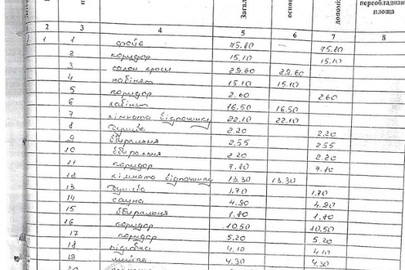 Загал
основ
допоміж
переобладнан
площа
2 3 4 5 6 7 8
1 1 фойє 75.80 75.80
2 коридор 15.10 15.10
3 салон краси 22.60 22.60
4 кабінет 15.10 15.10
5 коридор 2.60 2.60
6 кабінет 16.50 16.50
7 кімната відпочинку 22.10 22.10
8 душова 2.20 2.20
9 вбиральня 2.55 2.55
10 вбиральня 2.20 2.20
11 коридор 7.10 7.10
12 кімната відпочинку 13.30 13.30
13 душова 1.70 1.70
14 сауна 4.90 4.90
15 вбиральня 1.80 1.80
16 коридор 10.50 10.50
17 коридор 5.20 5.20
18 4.10 4.10
19 4.30 4.30
20